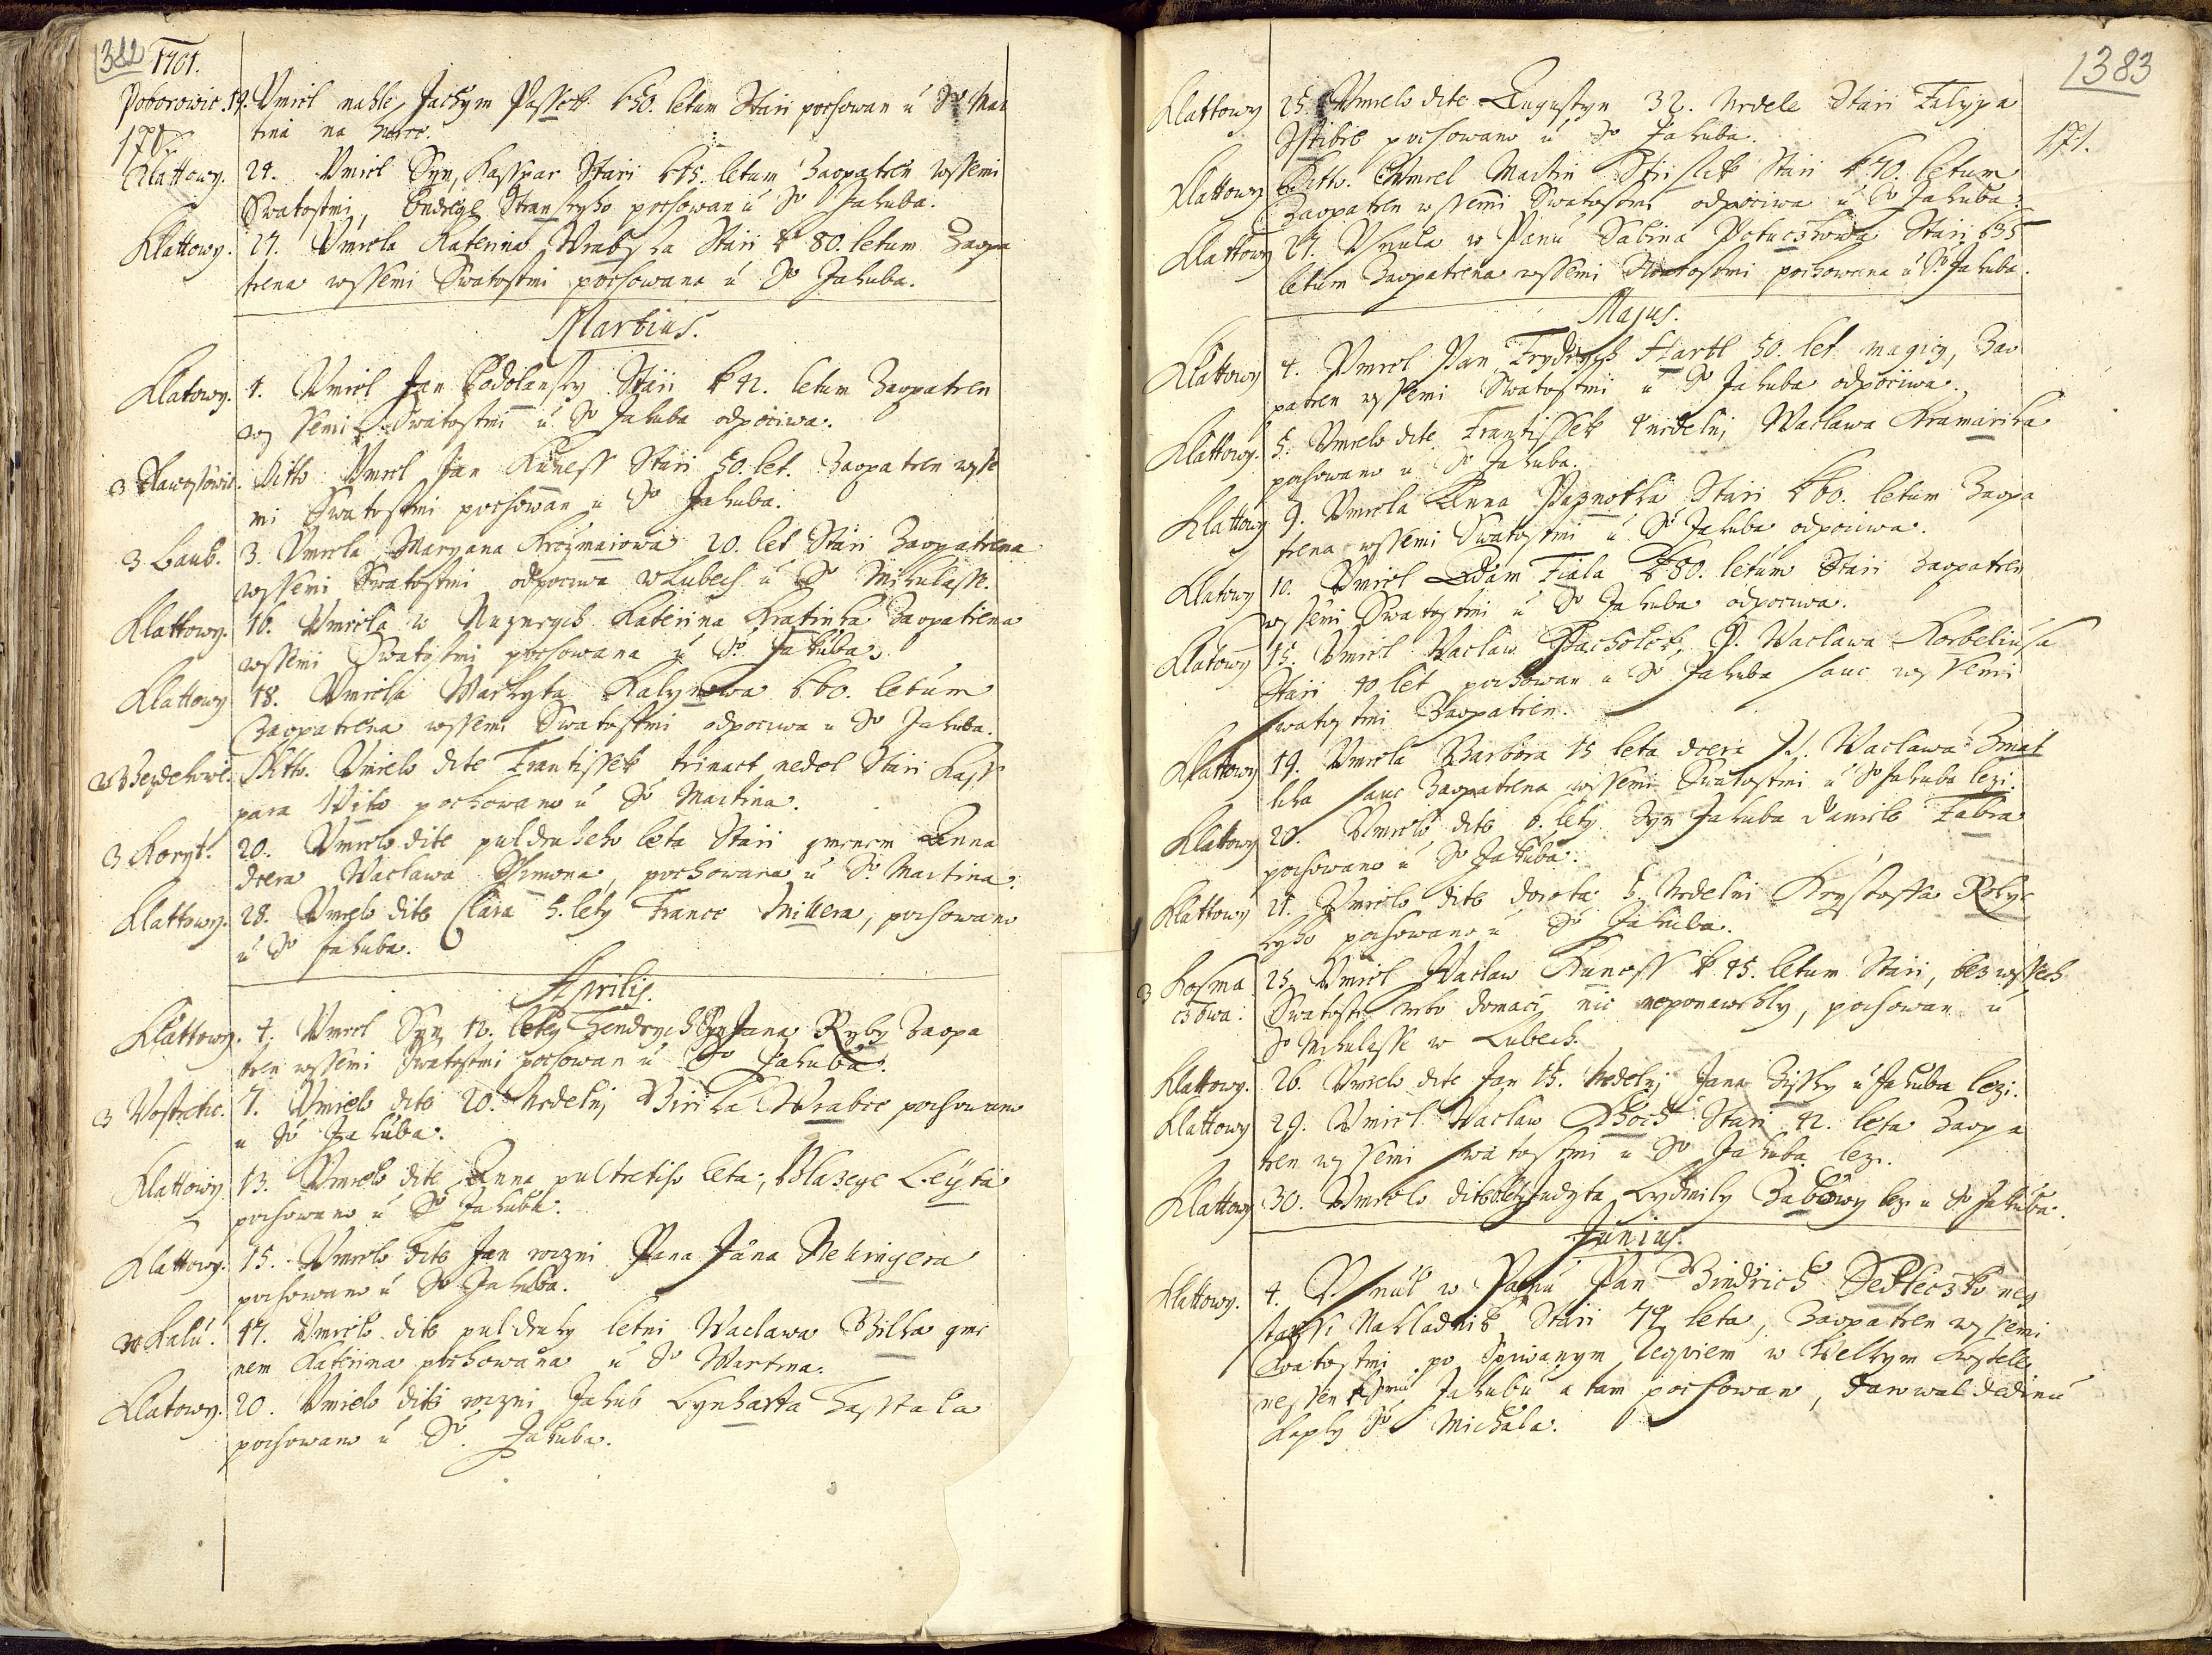 382 1701.
Poborowic. 19. Vmrel nahle Jachym Passek k 50. letum Stari pochowan u So Mar
170 tina na hurce.
Klattowy. 24. Vmrel Syn, Kasspar Stari k 15. letum Zaopatren wssemi
Swatostmi, Ondrege Stranskyho pochowan u So Jakuba.
Klattowy. 27. Vmrela Katerina Wrabska Stari k 80. letum Zaopa
trena wssemi Swatostmi pochowana u So Jakuba.
Martius.
Klatowy. 4. Vmrel Jan Podolansky Stari k 42. letum Zaopatren
wssemi Swatostmi u So Jakuba odpociwa.
Ditto Vmrel Jan Kuness Stari 50. let. Zaopatren wsse
mi Swatostmi pochowan u So Jakuba.
z Laub. 3. Vmrela Maryana 20. let Stari Zaopatrena
wssemi Swatostmi odpociwa w Lubech u So Mikulasse.
Klattowy. 16. Vmrela w Katerina Kratinka Zaopatrena
wssemi Swatostmi pochowana u So Jakuba.
Klattowy 18. Vmrela Markyta Kalynowa k 60. letum
Zaopatrena wssemi Swatostmi odpociwa u So Jakuba.
Ditto. Vmrelo dite Frantissek trinact nedel Stari Kass
para Wito pochowano u So Martina.
z Koryt. 20. Vmrelo dite puldruheho leta Stari gmenem Anna
dcera Waclawa Ssimona, pochowana u So Martina.
Klattowy. 28. Vmrelo dite Clara 5. lety France Millera, pochowano
u So Jakuba.
Aprilis.
Klattowy. 4. Vmrel Syn 12. lety Hendrych Syn Jana Ryby Zaopa
tren wssemi Swatostmi pochowan u So Jakuba.
z Wostretic. 7. Vmrelo dite 20. Nedelnj Girika Wrabce pochowano
u So Jakuba.
Klattowy 13. Vmrelo dite Anna pultretiho leta, Blazege Leyta
pochowano u So Jakuba.
Klattowy. 15. Vmrelo dite Jan roczni Pana Jana Nekingera
pochowano u So Jakuba.
z Kalu. 17. Vmrelo dite puldruhy letni Waclawa Bilka gme
nem Katerina pochowana u So Martina.
Klatowy. 20. Vmrelo dite roczni Jakub Lynharta Hasstala
pochowano u So. Jakuba.
1383
Klattowy 25. Vmrelo dite Augustyn 32. Nedele Stari Falypa
Stibre pochowano u So Jakuba. 171.
Klattowy Ditto. Vmrel Martin Stari k 70. letum
Zaopatren wssemi Swatostmi odpociwa u So Jakuba.
Klattowy 27. Vsnula w Panu Sabina Potuczkowa Stari k 35
letum Zaopatrena wssemi Swatostmi pochowana u So Jakuba.
Majus.
Klattowy 4. Vmrel Pan Frydrych Hartl 50. let magicy, Zao
patren wssemi Swatostmi u So Jakuba odpociwa.
Klattowy. 5. Vmrelo dite Frantissek 4 nedelnj Waclawa Kramarika
pochowano u So Jakuba.
Klattowy 9. Vmrela Anna Paznotka Stari k 60. letum Zaopa
trena wssemi Swatostmi u So Jakuba odpociwa.
Klatowy 10. Vmrel Adam Fiala k 80. letum Stari Zaopatren
wssemi Swatostmi u So Jakuba odpociwa.
Klatowy 15. Vmrel Waclaw Pacholek, P. Waclawa Korbeliusa
Stari 40 let pochowan u So Jakuba sauc wssemi
swatostmi Zaopatren.
Klattowy 19. Vmrela Barbora 15 leta dcera Waclawa Zmat
lika sauc Zaopatrena wssemi Swatostmi u So Jakuba lezi.
Klattowy 20. Vmrelo dite 6. lety Syn Jakuba Daniele Fabra
pochowano u So Jakuba.
Klattowy 21. Vmrelo dite dorota 5. Nedelni Krysstoffa
kyho pochowano u So Jakuba.
z Kosma 25. Vmrel Waclaw Kuness k 45. letum Stari, bez wssech
czowa: Swatosti nebo domaci nic neponawrhly, pochowan u
So Mikulasse w Lubech.
Klattowy. 26. Vmrelo dite Jan 15. Nedelnj Jana Zissky u Jakuba lezi.
Klattowy 29. Vmrel Waclaw Stari 42. leta Zaopa
tren wssemi swatostmi u So Jakuba lezi.
Klattowy 30. Vmrelo dite Judyta Lydmily Babowy lezi u So Jakuba.
Junius.
Klattowy. 4. Vsnul w Panu Pan Bindrich Sedleczko ney
starssi Nakladnik Stari 74 leta, Zaopatren wssemi
Swatostmi po Spiwanym reqviem w Welkym Kostele
nessen k Smu Jakubu a tam pochowan, Darowal dedinu
Kaply So Michala.